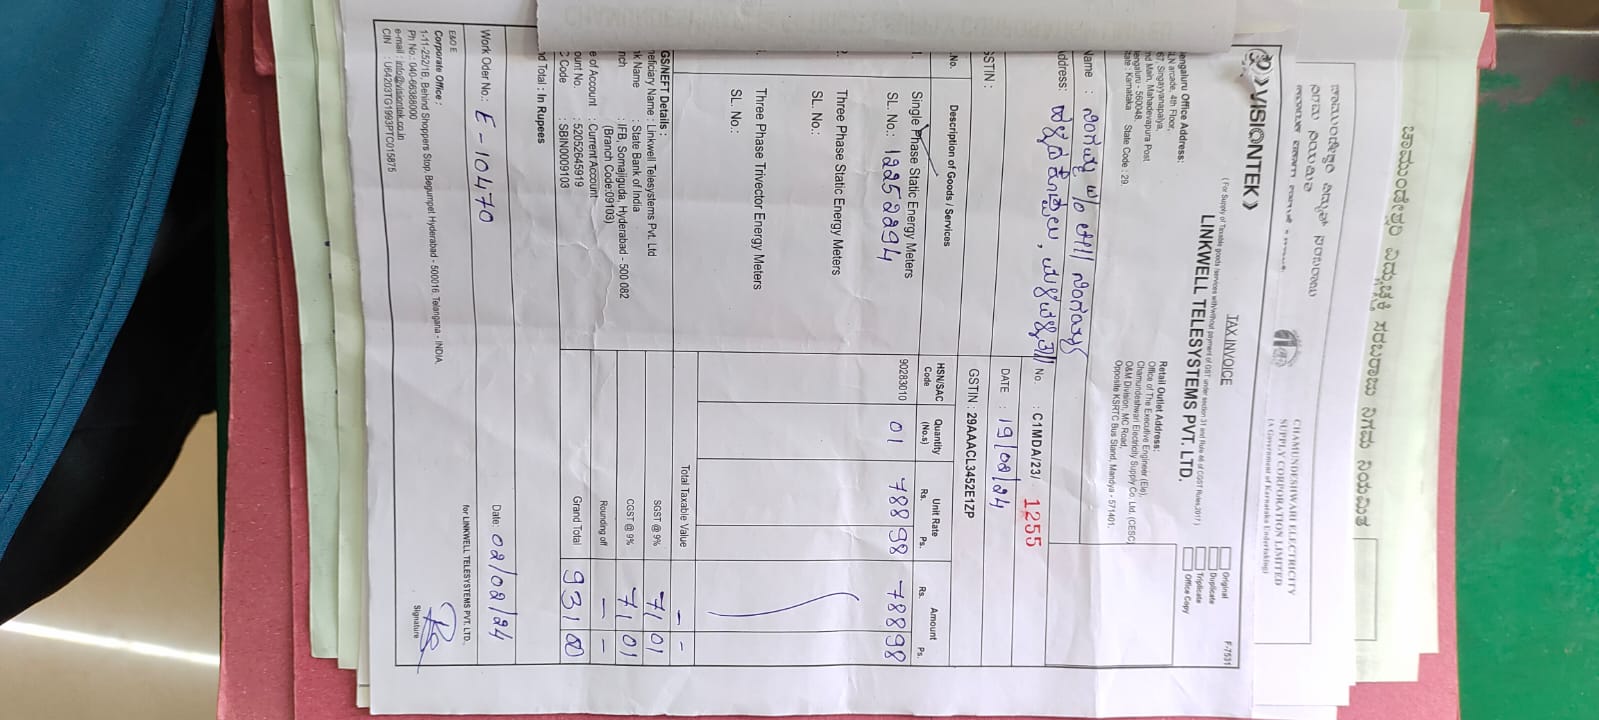 ಚಾಮುಂಡೇಶ್ವರಿ ವಿದ್ಯುಚ್ಛಕ್ತಿ ಸರಬರಾಜು ನಿಗಮ ನಿಯಮಿತ
ನಿಗಮ ನಿಯಮಿತ
CHAMUNDESHWARI ELECTRICITY
SUPPLY CORPORATION LIMITED
(A Government of Karnataka Undertaking)
VISIONTEK
TAX INVOICE
F-7531
( For Supply of Taxable goods /services with/without payment of GST under section 31 and Rule 46 of CGST Rules,2017 )
LINKWELL TELESYSTEMS PVT. LTD.
Original
Duplicate
Triplicate
Office Copy
engaluru Office Address:
LN arcade, 4th Floor,
67, Singayyanapalya,
nd Main, Mahadevapura Post
engaluru - 560048.
tate : Karnataka State Code : 29.
Retail Outlet Address:
Office of The Executive Engineer (Ele),
Chamundeshwari Electricity Supply Co. Ltd. (CESC)
O&M Division, MC Road,
Opposite KSRTC Bus Stand, Mandya - 571401.
Name :
ddress:
No. : C1MDA/23/ 1255
DATE : 19/02/24
STIN :
GSTIN : 29AAACL3452E1ZP
.No
Description of Goods / Services
HSN/SAC Code
Quantity (No.s)
Unit Rate Rs. Ps.
Amount Rs. Ps.
Single Phase Static Energy Meters
SL. No.: 12252294
90283010 01 788 98 788 98
Three Phase Static Energy Meters
SL. No.:
Three Phase Trivector Energy Meters
SL. No.:
Total Taxable Value - -
GS/NEFT Details :
SGST @ 9% 71 01
neficiary Name : Linkwell Telesystems Pvt. Ltd
k Name : State Bank of India
CGST @ 9% 71 01
nch : IFB, Somajiguda, Hyderabad - 500 082
(Branch Code:09103)
Rounding off - -
e of Account : Current Account
ount No. : 52052645919
Grand Total 931 00
C Code : SBIN0009103
nd Total : In Rupees
Work Oder No.: E-10470
Date: 02/02/24
E&O E
for LINKWELL TELESYSTEMS PVT. LTD.
Corporate Office :
1-11-252/1B, Behind Shoppers Stop, Begumpet Hyderabad - 500016. Telangana - INDIA.
Ph No : 040-66388000
e-mail : info@visiontek.co.in
CIN : U64203TG1993PTC015875
Signature